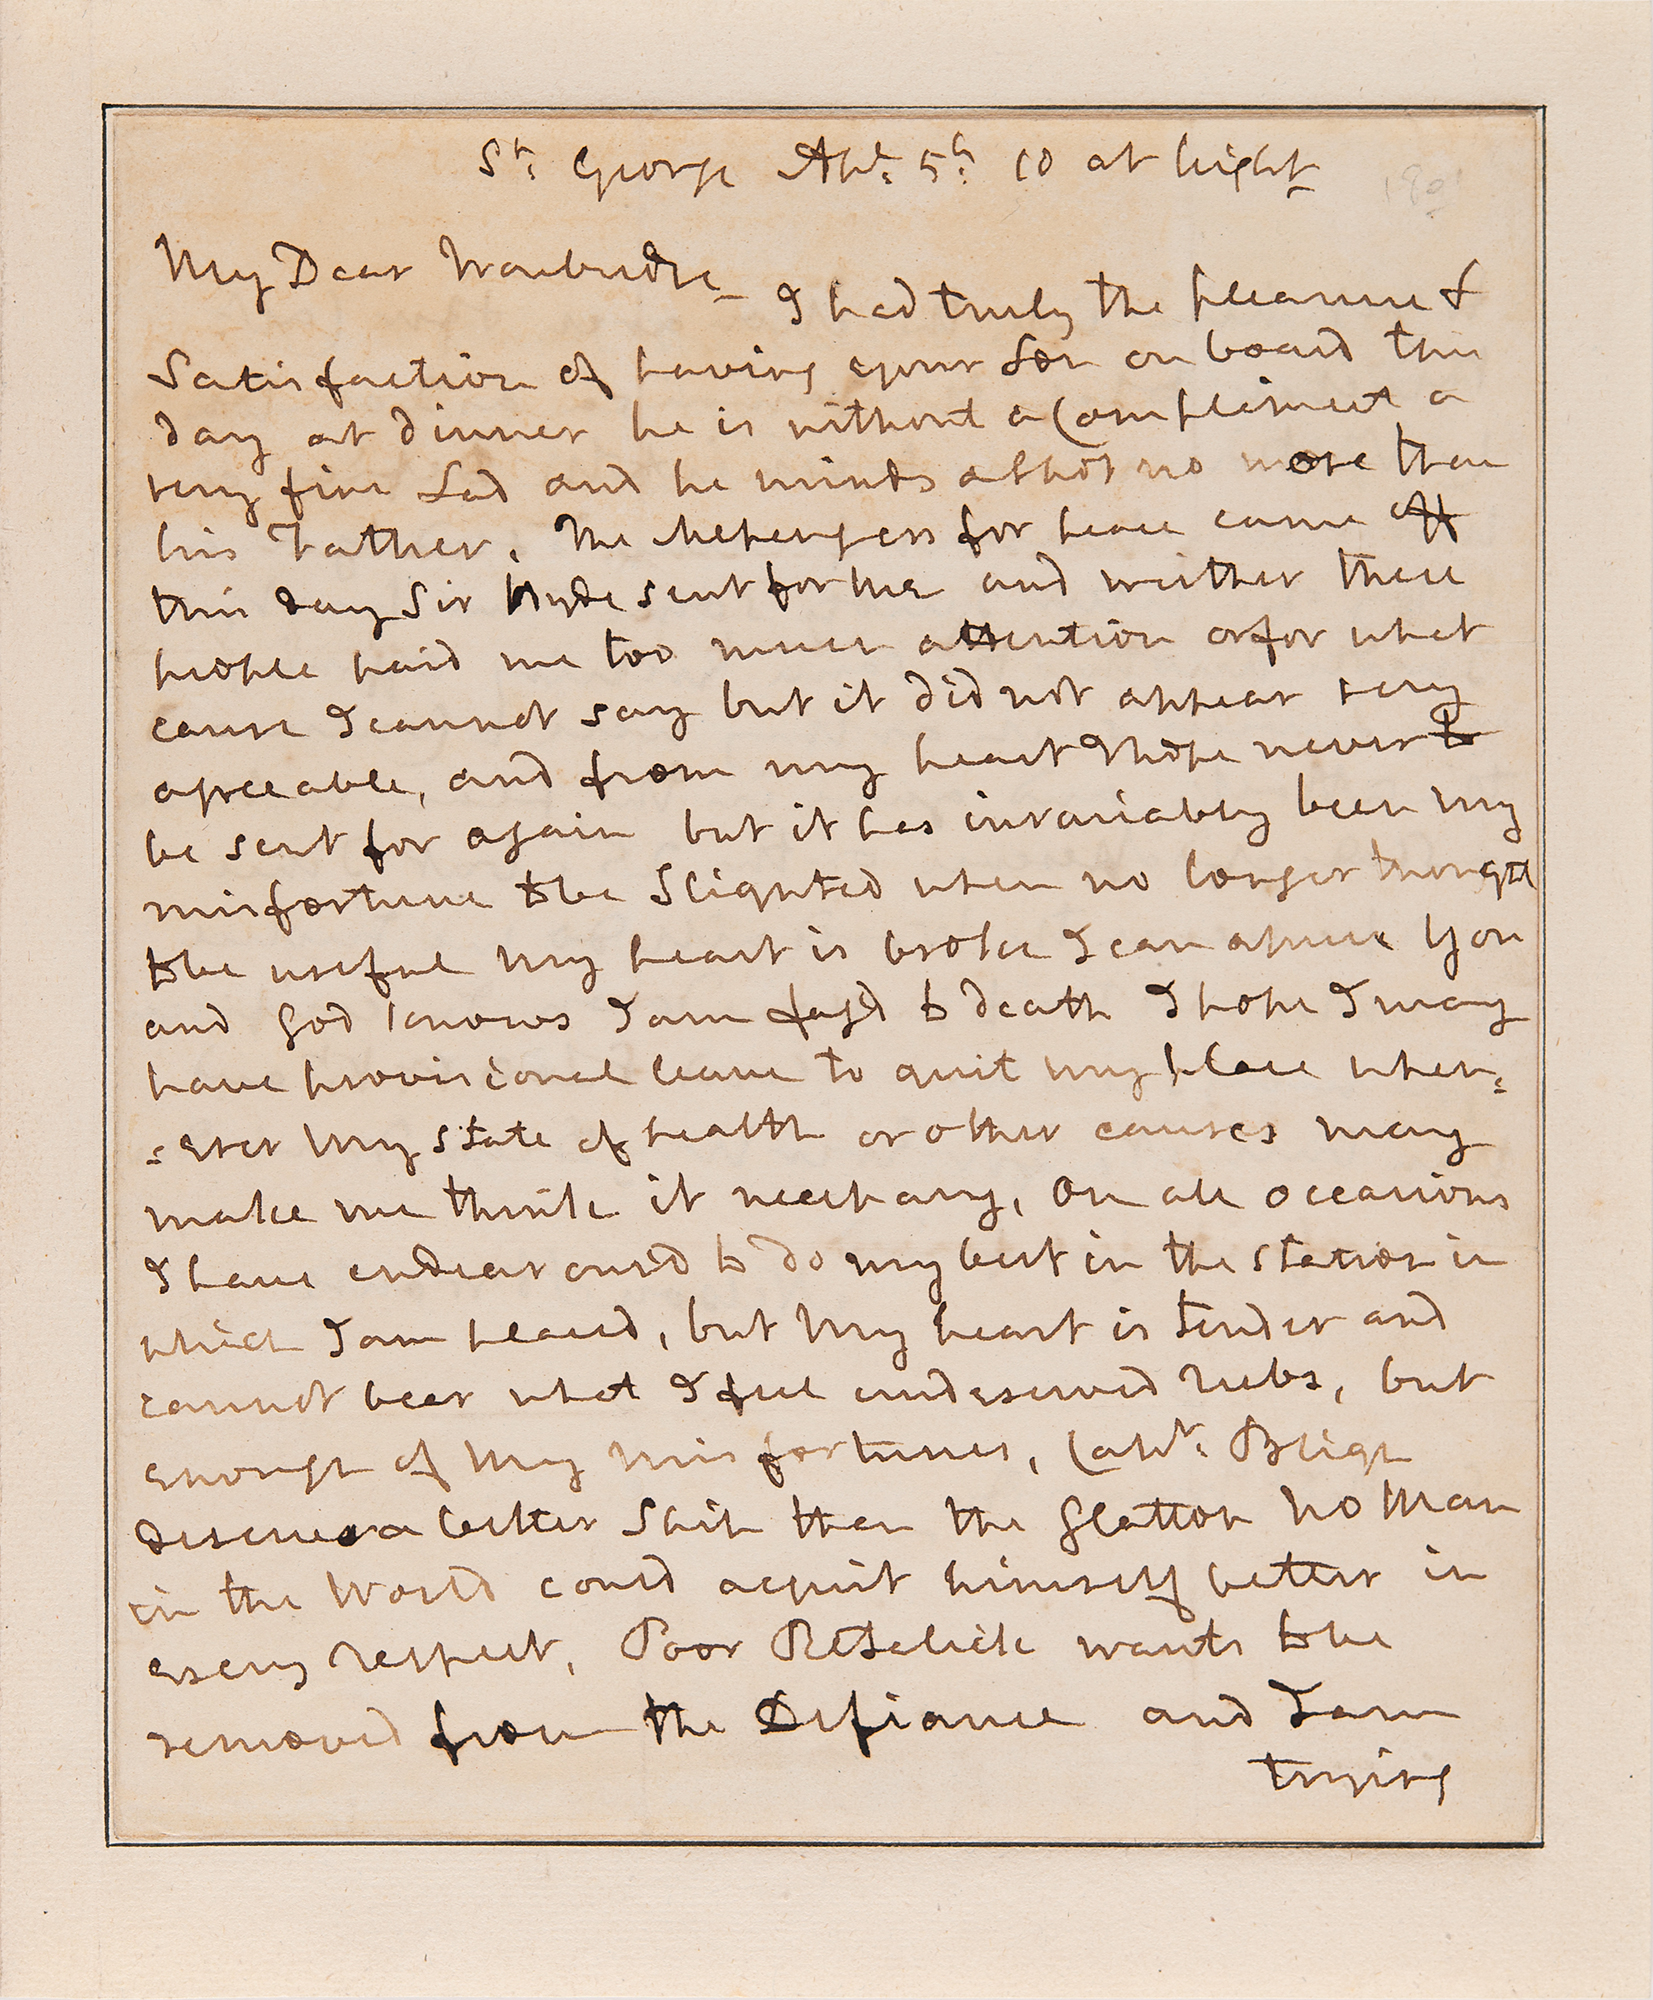 St: George Apl: 5h: 10 at Night
1801
My Dear Troubridge_ I had truly the pleasure &
Satisfaction of having your Son on board this
day at dinner he is without a Compliment a
very fine Lad and he minds a shot no more than
his Father. The Messengers for peace came off
this day Sir Hyde sent for me and weither these
people paid me too much attention or for what
cause I cannot say but it did not appear very
agreeable, and from my heart I hope never to
be sent for again but it has invariably been my
misfortune to be Slighted when no longer thought
to be useful my heart is broke I can assure You
and God knows I am fag'd to death I hope I may
have provisional leave to quit my place when=
=ever my state of health or other causes may
make me think it necessary, on all occasions
I have endeavoured to do my best in the station in
which I am placed, but my heart is tender and
cannot bear what I feel undeserved rubs, but
enough of my misfortunes, Capt: Bligh
deserves a better Ship than the Glatton no Man
in the World could acquit himself better in
every respect, Poor Retalick wants to be
removed from the Defiance and I am
trying